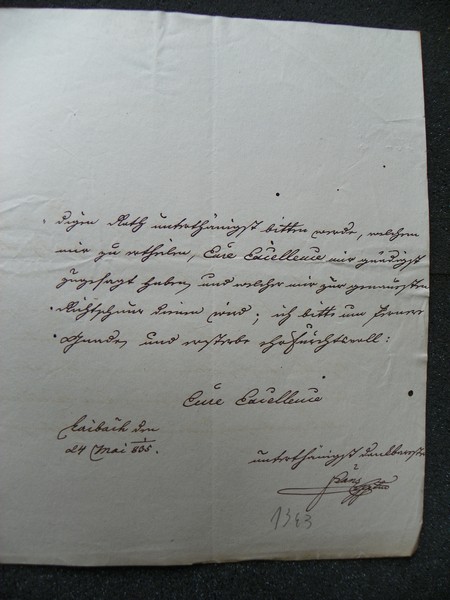 digen Rath unterthänigst bitten werde, welchen
mir zu ertheilen, Eure Excellence mir gnädigst
zugesagt haben, und welcher mir zur genauesten
Richtschnur dienen wird; ich bitte um fernere
Gnade, und ersterbe ehrfurchtsvoll:
Eure Excellence
Laibach den
24 Mai 1835.
unterthänigst dankbarster
1343